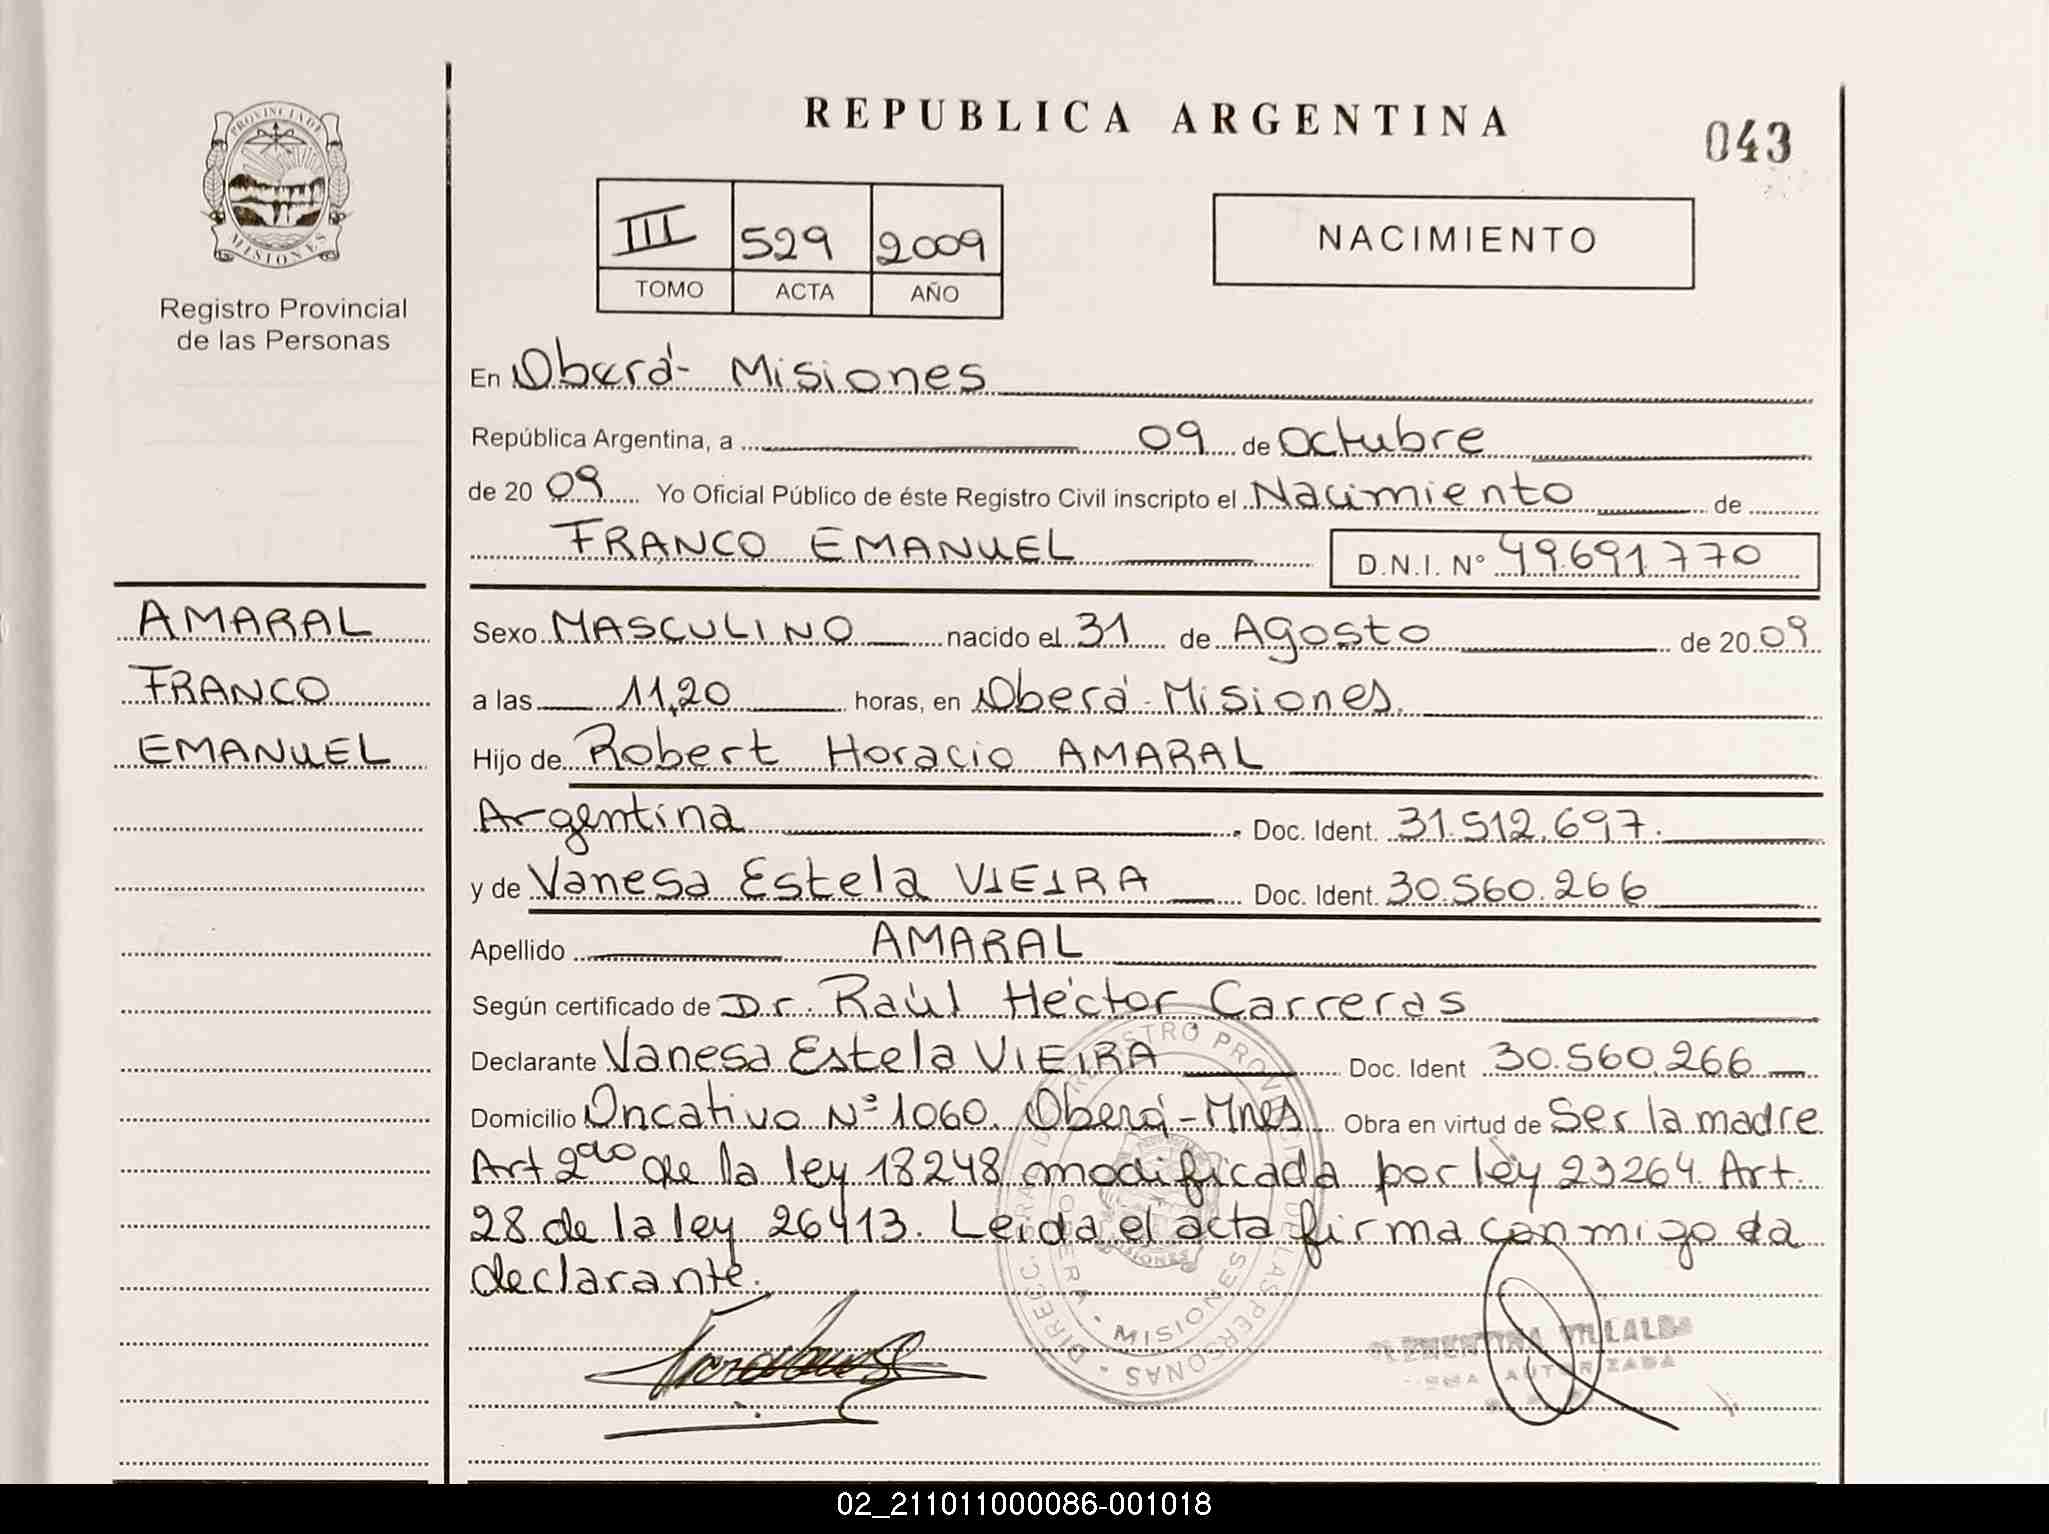 REPUBLICA ARGENTINA
043
PROVINCIA DE
MISIONES
Registro Provincial
de las Personas
III 529 2009
TOMO ACTA AÑO
NACIMIENTO
En Oberá - Misiones
República Argentina, a 09 de Octubre
de 20 09 Yo Oficial Público de éste Registro Civil inscripto el Nacimiento de
FRANCO EMANUEL D.N.I. Nº 49.691.770
AMARAL
FRANCO
EMANUEL
Sexo MASCULINO nacido el 31 de Agosto de 20 09
a las 11,20 horas, en Oberá - Misiones.
Hijo de Robert Horacio AMARAL
Argentina Doc. Ident. 31.512.697.
y de Vanesa Estela VIEIRA Doc. Ident. 30.560.266
Apellido AMARAL
Según certificado de Dr. Raúl Héctor Carreras
Declarante Vanesa Estela VIEIRA Doc. Ident 30.560.266
Domicilio Oncativo Nº 1060. Oberá - Mnes Obra en virtud de Ser la madre
Art 2do de la ley 18248 modificada por ley 23264. Art.
28 de la ley 26413. Leida el acta firma conmigo la
declarante.
DIRECC. GRAL. DE REGISTRO PROVINCIAL DE LAS PERSONAS
OBERA - MISIONES
CLEMENTINA VILLALBA
FIRMA AUTORIZADA
02_211011000086-001018